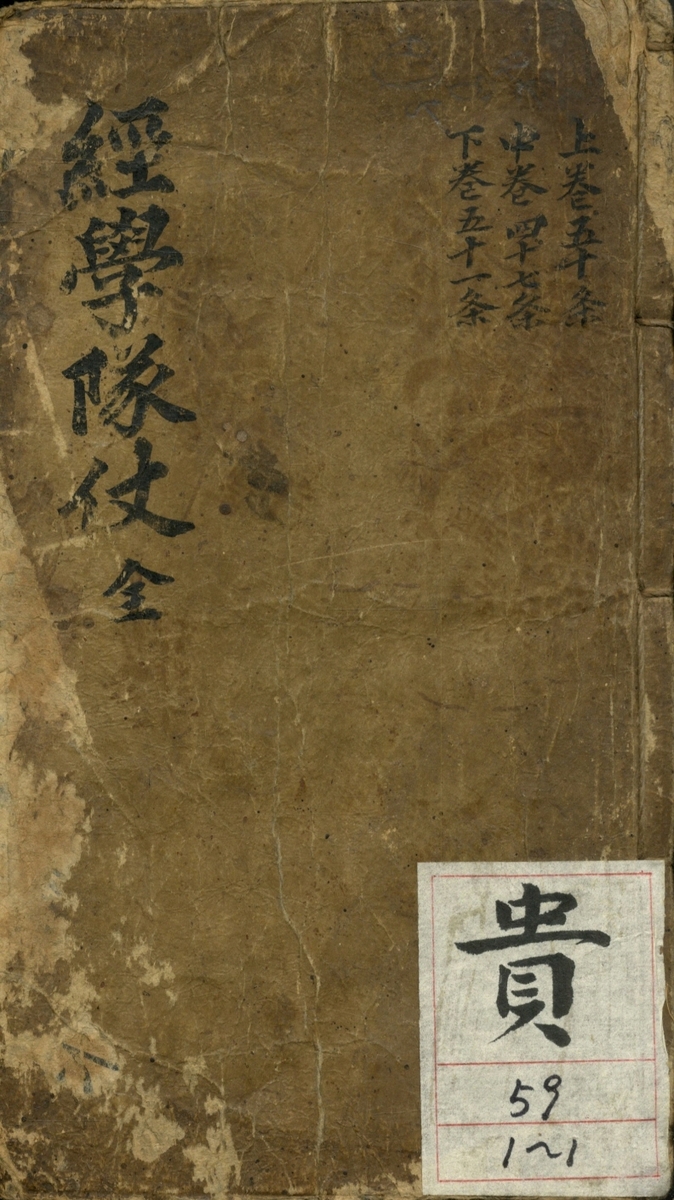 上卷五十条
中卷四十七条
下卷五十一条
經學隊仗 全
貴
59
1~1